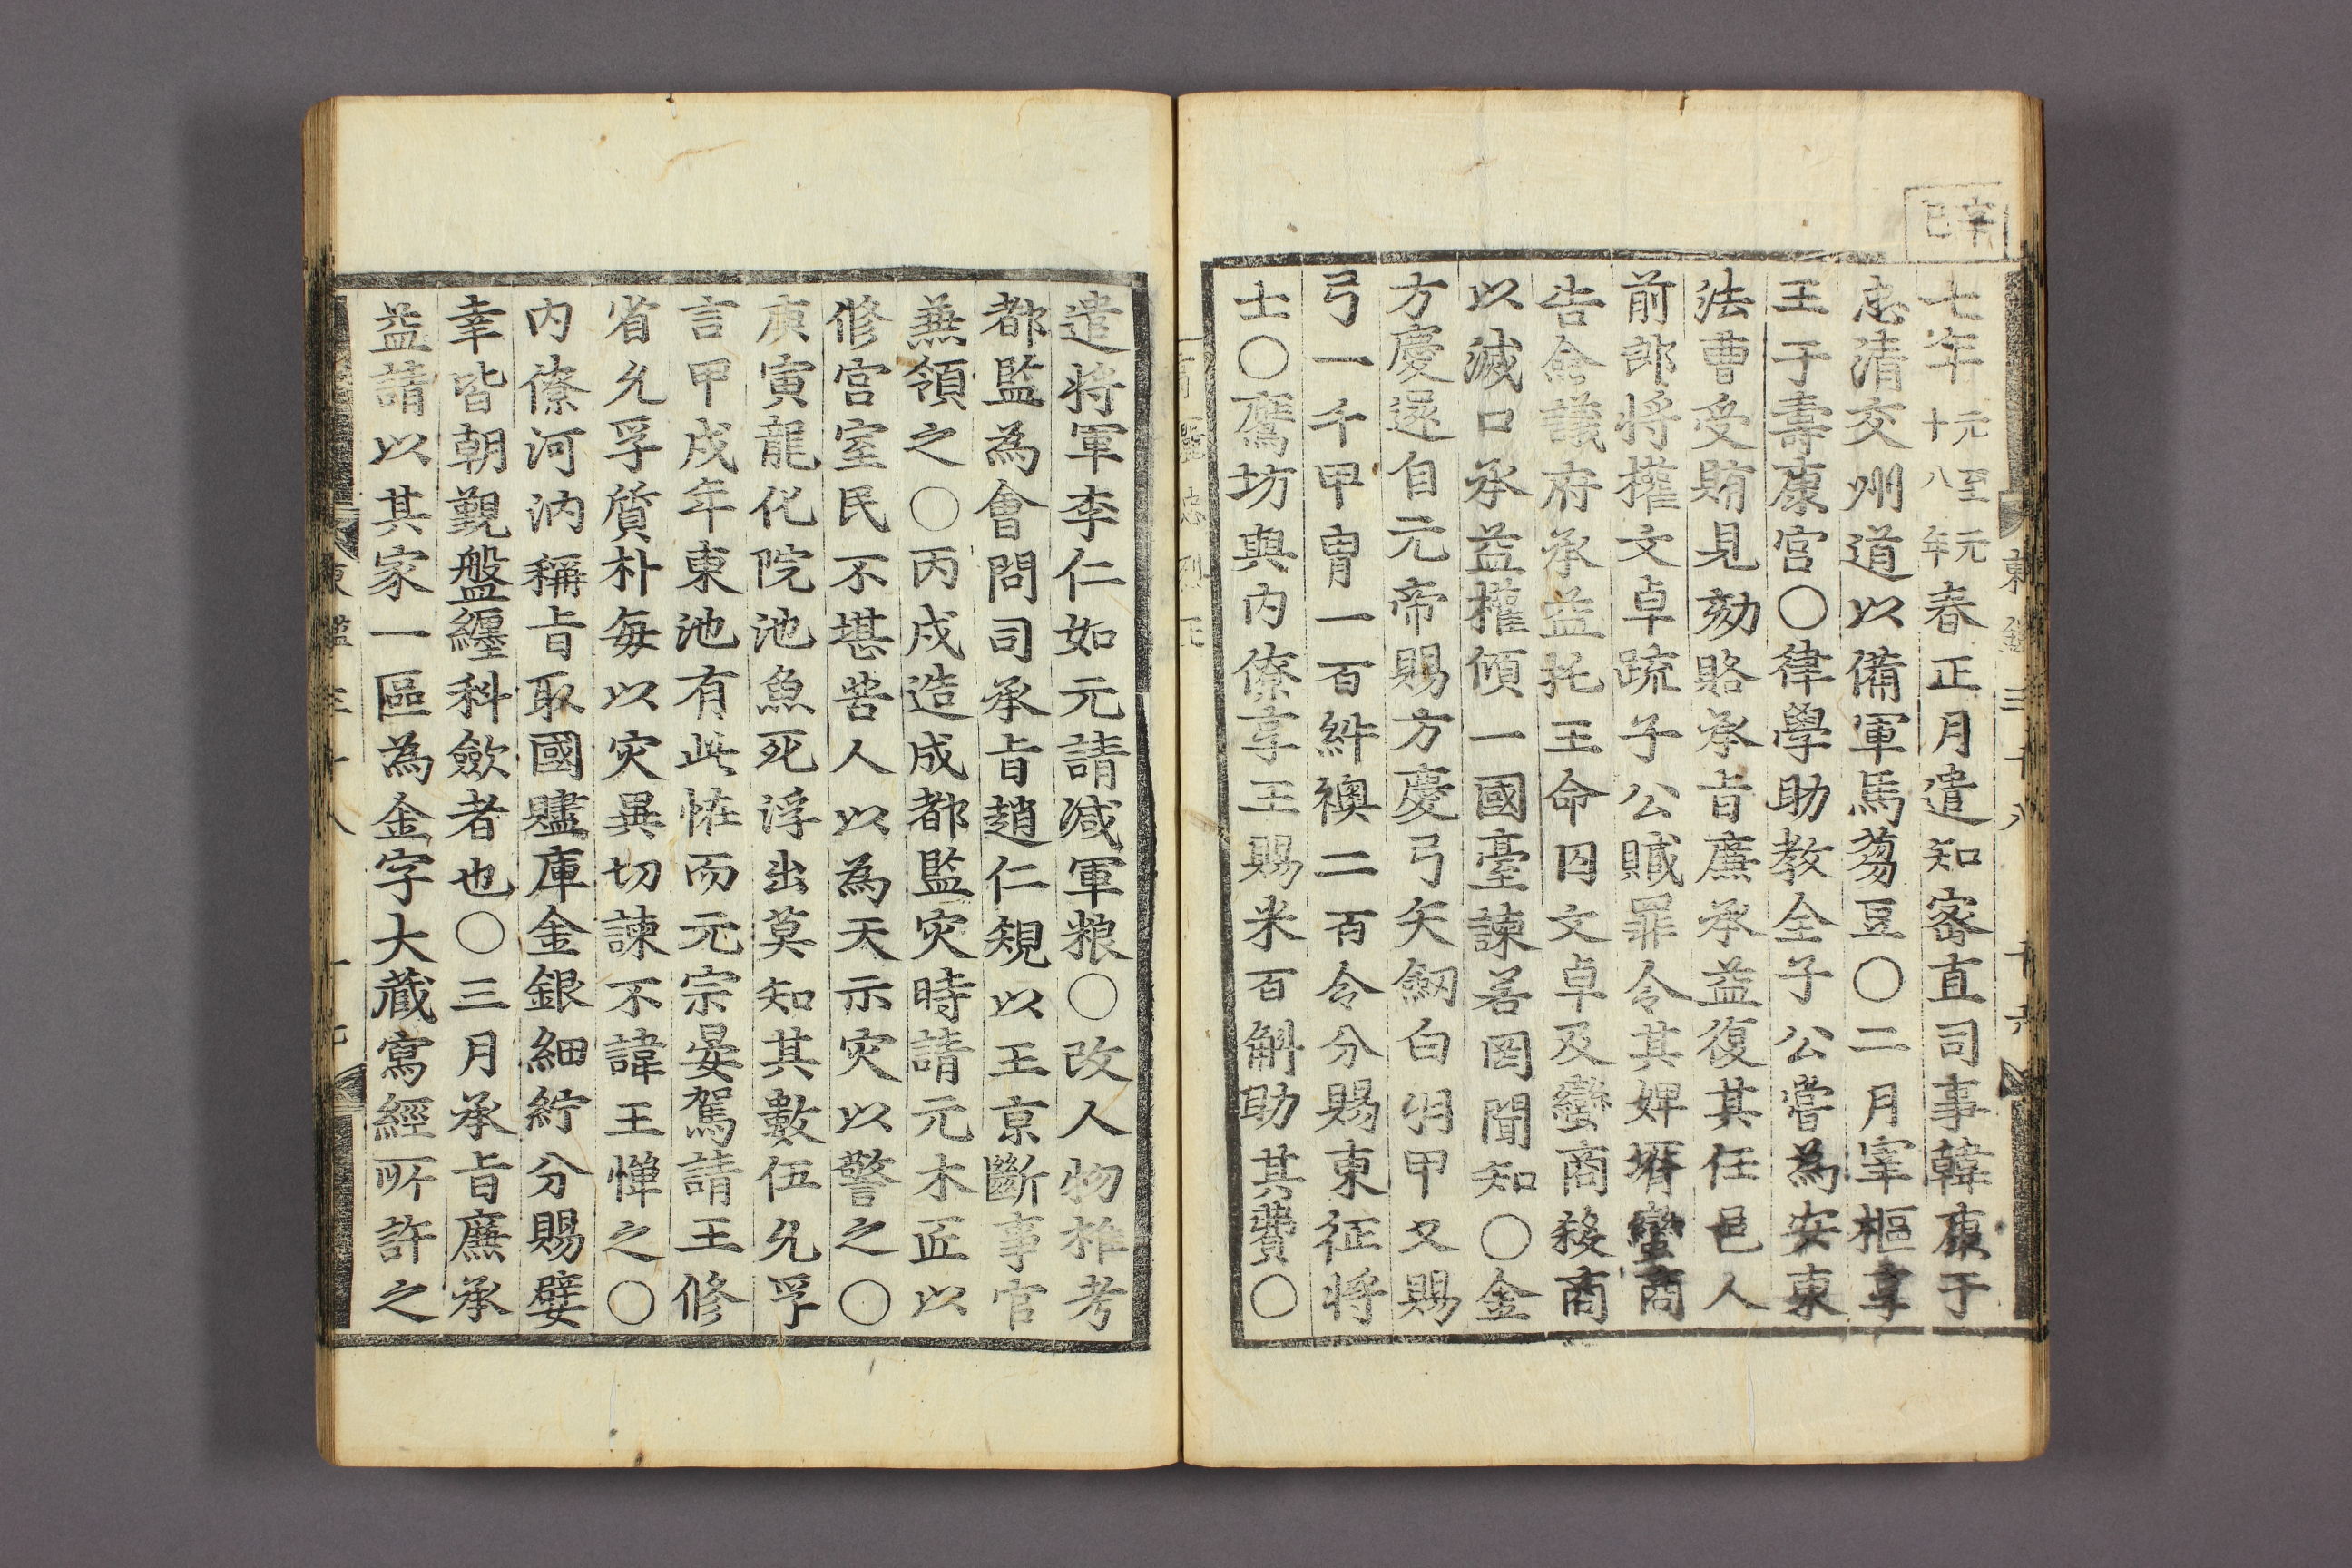 辛巳
七年元至元十八年春正月遣知密直司事韓康于
忠清交州道以備軍馬蒭豆○二月宰樞享
王于壽康宫○律學助教全子公嘗為安東
法曹受賄見劾賂承旨廉承益復其任邑人
前郎将權文卓䟽子公贓罪令其婢壻蠻商
告僉議府承益托王命囚文卓及蠻商殺商
以滅口承益權傾一國臺諫若罔聞知○金
方慶還自元帝賜方慶弓矢劒白羽甲又賜
弓一千甲胄一百絆襖二百令分賜東征将
士○鷹坊與内僚享王賜米百斛助其費○
東鑑三十八
遣将軍李仁如元請减軍粮○改人物推考
都監為會問司承旨趙仁規以王京斷事官
兼領之○丙戌造成都監灾時請元木匠以
修宫室民不堪苦人以為天示灾以警之○
庚寅龍化院池魚死浮出莫知其數伍允孚
言甲戌年東池有此恠而元宗晏駕請王修
省允孚質朴每以灾異切諫不諱王憚之○
内僚河汭稱旨取國贐庫金銀細紵分賜嬖
幸皆朝覲盤纒科歛者也○三月承旨廉承
益請以其家一區為金字大蔵寫經所許之